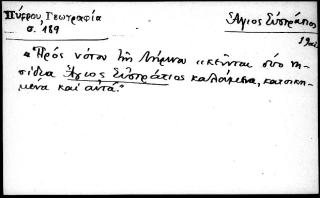 Πύρρου, Γεωγραφία
σ. 189
Ἅγιος Εὐστράτιος
"Πρὸς νότον τῆς Λήμνου κεῖνται δύο νη-
σίδια Ἅγιος Εὐστράτιος καλούμενα, κατοικη-
μένα καὶ αὐτά."